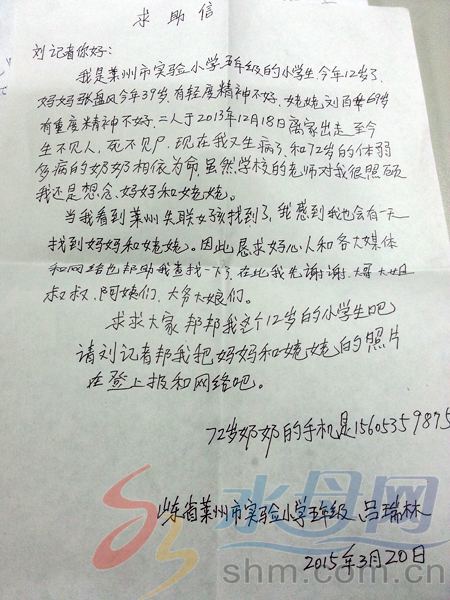 求助信
刘记者你好：
我是莱州市实验小学五年级的小学生，今年12岁了，
妈妈张盘风今年39岁，有轻度精神不好，姥姥刘百 69岁
有重度精神不好，二人于2013年12月18日离家出走，至今
生不见人，死不见尸，现在我又生病了，和72岁的体弱
多病的奶奶相依为命，虽然学校的老师对我很照顾
我还是想念妈妈和姥姥。
当我看到莱州失联女孩找到了，我感到我也会有一天
找到妈妈和姥姥。因此恳求好心人和各大媒体
和网络也帮助我查找一下，在此我先谢谢，大哥大姐
叔叔，阿姨们，大爷大娘们。
求求大家帮帮我这个12岁的小学生吧
请刘记者帮我把妈妈和姥姥的照片
在登上报和网络吧。
72岁奶奶的手机是15605359895
山东省莱州市实验小学五年级 吕瑞林
2015年3月20日
水母网
shm.com.cn